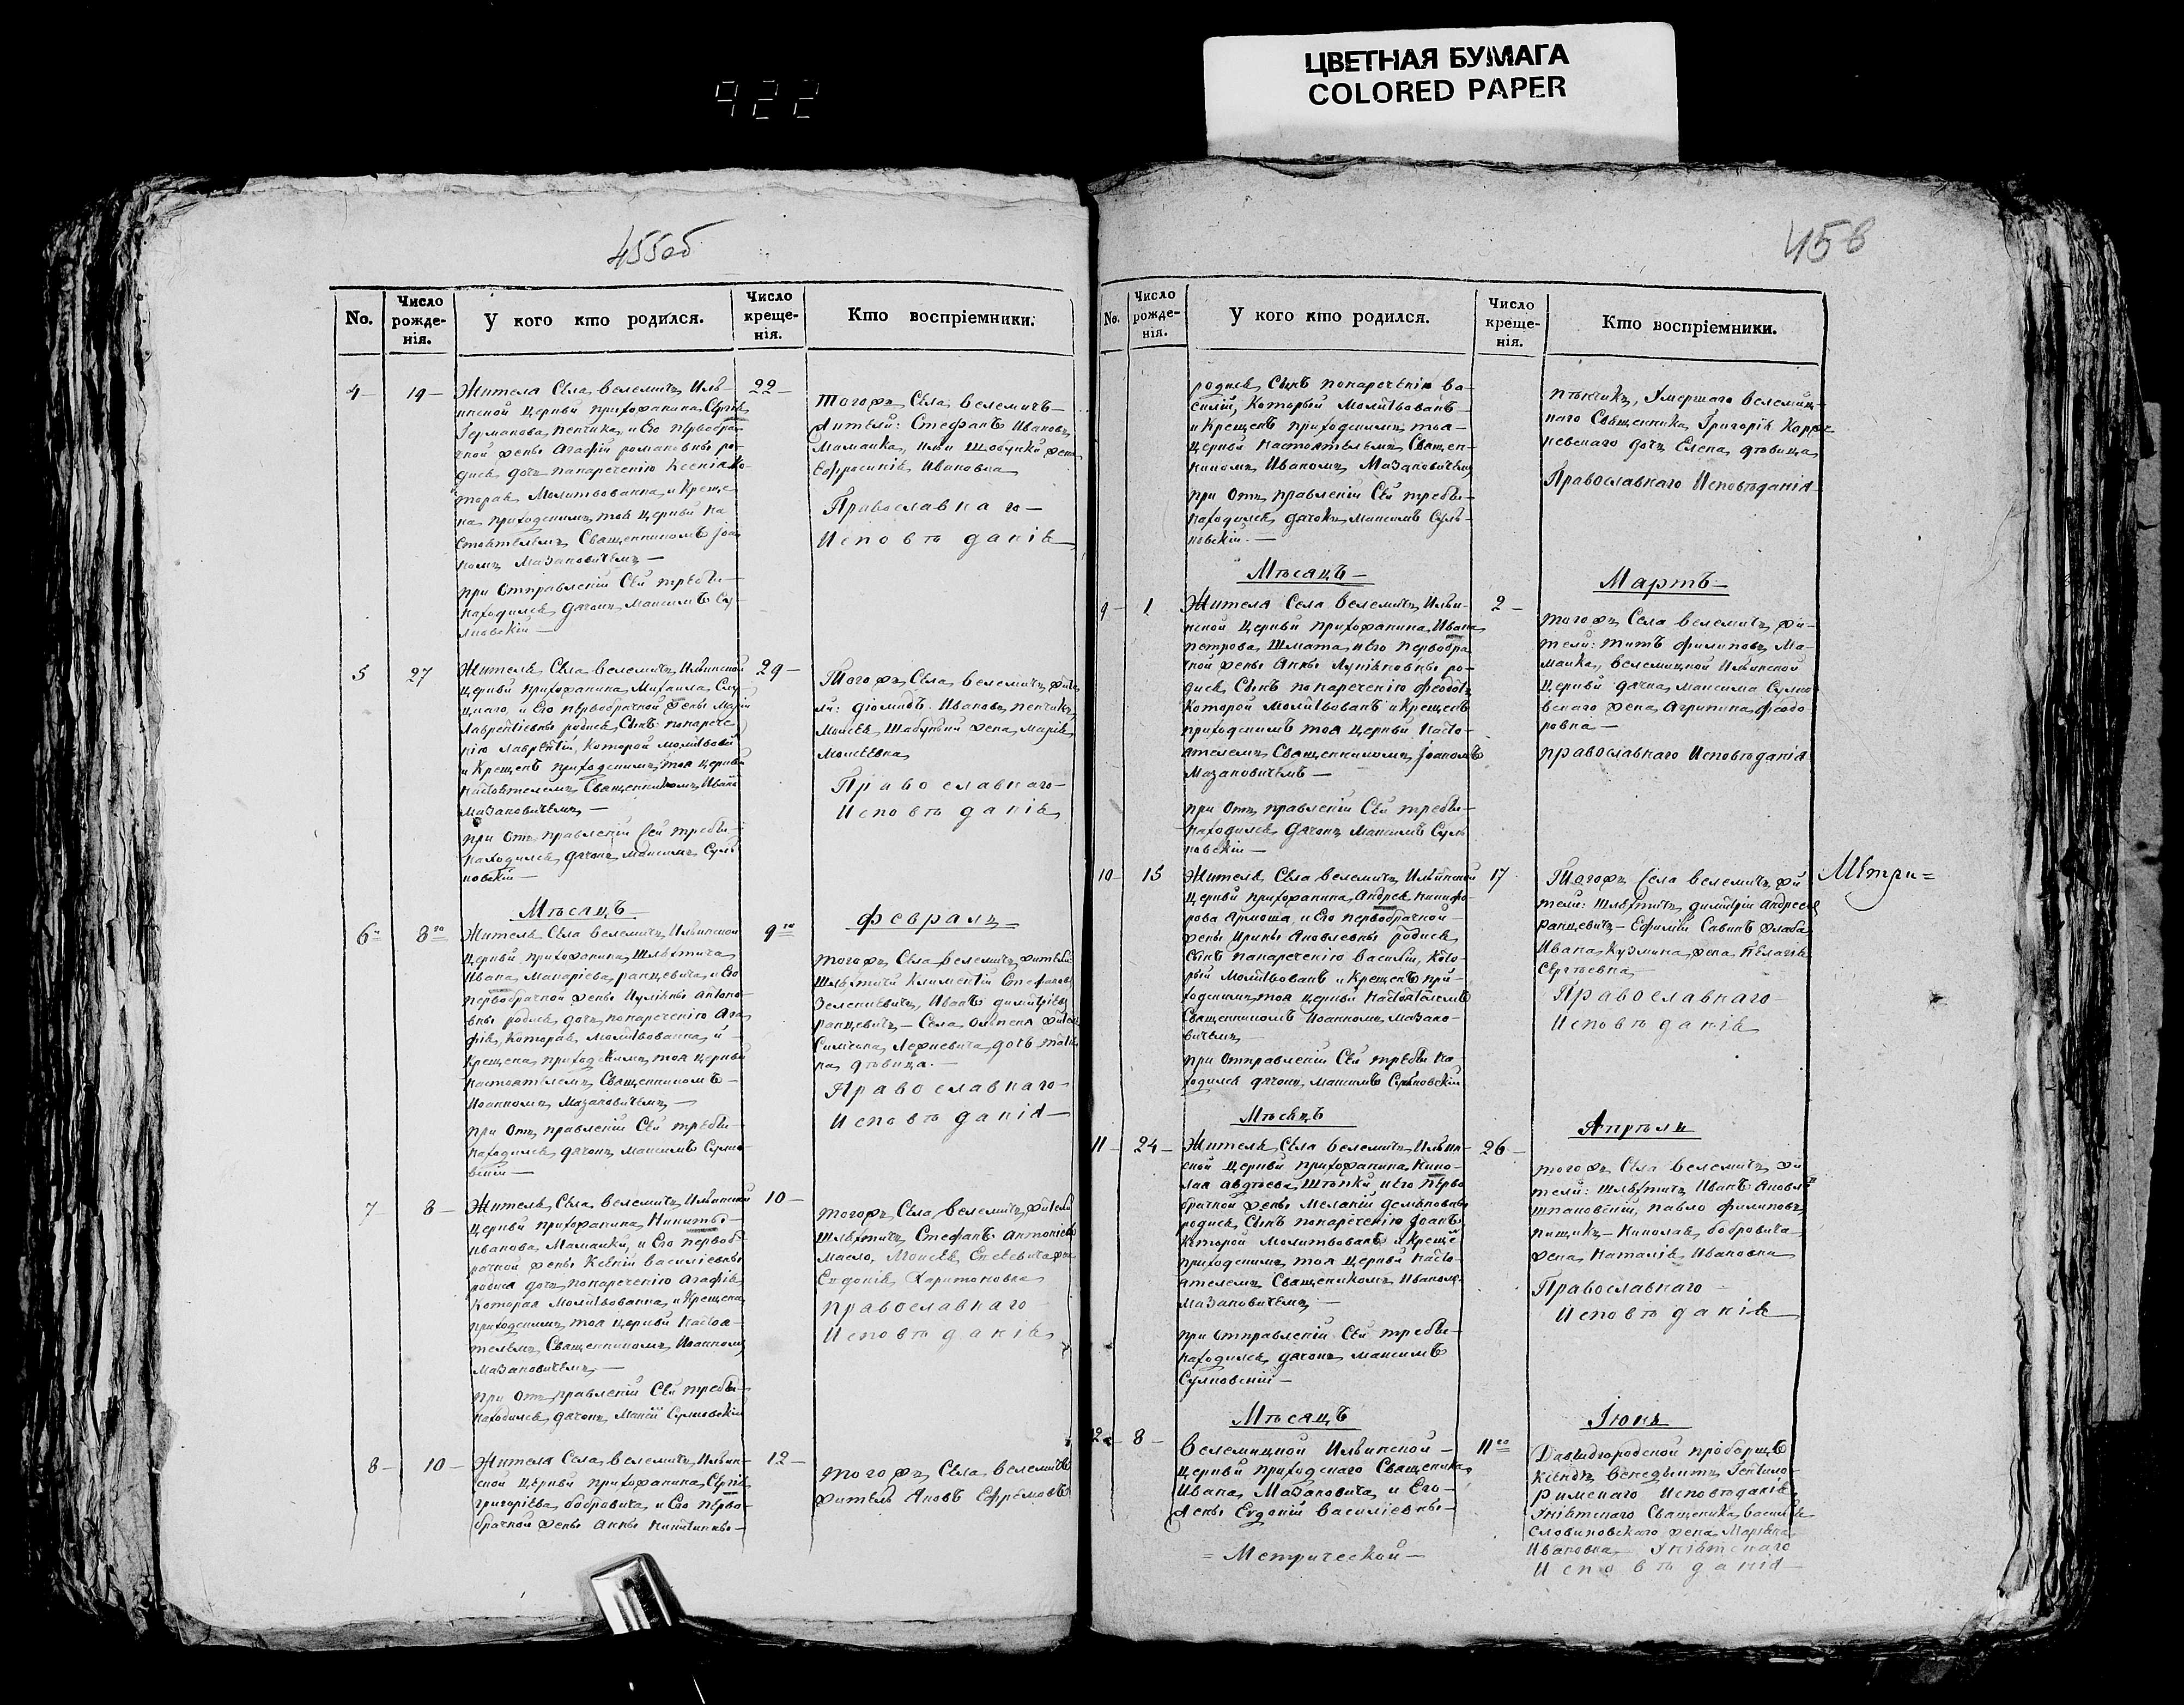 ЦВЕТНАЯ БУМАГА
COLORED PAPER
922
455об
No.
Число рожденія.
У кого кто родился.
Число крещенія.
Кто воспріемники.
4 19 22
Жителя Села Велемичъ Иль-
инской Церкви прихожанина
Германова Пенчика, и Его первобра-
чной жены Агафіи Романовны ро-
дися дочь понареченію Ксенія ко-
торая Молитвованна и Креще-
на приходскимъ тоя Церкви На-
стоятелемъ Священникомъ Іоан-
номъ Мазановичемъ —
при Отправленіи Сей требы —
находился дячокъ Максимъ
Тогожъ Села Велемичъ —
жители: Стефанъ Ивановъ
Мамайка, жена
Ефросинія Ивановна
Православнаго —
Исповѣданія
5 27 29
Житель Села Велемичъ Ильинской
Церкви прихожанина Михаила
и Его первобрачной жены Маріи
Лаврентіевны родися Сынъ понарече
нію Лаврентій, которой молитвованъ
и Крещенъ приходскимъ тоя Церкви
Настоятелемъ Священникомъ Иваномъ
Мазановичемъ —
при Отправленіи Сей требы —
находился дячокъ Максимъ
Тогожъ Села Велемичъ жите
ли: Діомидъ Ивановъ Пенчикъ,
жена Марія
Моисеевна
Православнаго —
Исповѣданія
Мѣсяцъ Февраль
6 8 9
Житель Села Велемичъ Ильинской
Церкви прихожанина Шляхтича
Ивана Макаріева Ранцевича, и Его
первобрачной жены Антоно-
вны родися дочь понареченію Ага
фія, которая молитвованна и
Крещена приходскимъ тоя Церкви
Настоятелемъ Священникомъ —
Іоанномъ Мазановичемъ —
при Отправленіи Сей требы —
находился дячокъ Максимъ
Тогожъ Села Велемичъ жители
Шляхтичи Климентій Стефановъ
Зеленкевичъ, Иванъ Димитріевъ
Ранцевичъ — Села
дочь
дѣвица. —
Православнаго —
Исповѣданія —
7 8 10
Житель Села Велемичъ Ильинской
Церкви прихожанина Никиты —
Иванова Мамайки, и Его первобрачной
жены Ксеніи Василіевны
родися дочь понареченію Агафія
Которая Молитвованна и Крещена
приходскимъ тоя Церкви Настоя-
телемъ Священникомъ Іоанномъ
Мазановичемъ —
при Отправленіи Сей требы —
находился дячокъ
Тогожъ Села Велемичъ жители
Шляхтичъ Стефанъ Антоніевъ
Масло, Моисея
Евдокія Харитоновна
Православнаго
Исповѣданія
8 10 12
Жителя Села Велемичъ Ильин-
ской Церкви прихожанина
Григоріева Бобровича и Его перво-
брачной жены Анны Никитивны —
Тогожъ Села Велемичъ
житель Яковъ Ефремовъ
456
No.
Число рожденія.
У кого кто родился.
Число крещенія.
Кто воспріемники.
родися Сынъ понареченію Ва-
силій, Который Молитвованъ —
и Крещенъ приходскимъ тоя —
Церкви Настоятелемъ Священ-
никомъ Иваномъ Мазановичемъ
при Отправленіи Сей требы —
находился дячокъ Максимъ
Умершаго Велемиц-
наго Священника Григорія
дочь Елена дѣвица
Православнаго Исповѣданія
Мѣсяцъ — Мартъ —
9 1 2
Жителя Села Велемичъ Ильи-
нской Церкви прихожанина Ивана
Петрова Шмата и Его первобра
чной жены Анны ро-
дися Сынъ понареченію
которой Молитвованъ и Крещенъ
приходскимъ тоя Церкви Насто-
ятелемъ Священникомъ Іоанномъ
Мазановичемъ —
при Отправленіи Сей требы —
находился дячокъ Максимъ
Тогожъ Села Велемичъ жи-
тели: Титъ Филиповъ Ма-
майка, Велемицкой Ильинской
Церкви дячка Максима
жена Агрипина Феодо-
ровна —
Православнаго Исповѣданія
10 15 17
Житель Села Велемичъ Ильинской
Церкви прихожанина Андрея Никифо-
рова Ярмоша, и Его первобрачной —
жены Ирины Яковлевны родися
Сынъ понареченію Василій, Кото-
рый Молитвованъ и Крещенъ при-
ходскимъ тоя Церкви Настоятелемъ
Священникомъ Іоанномъ Мазано-
вичемъ —
при Отправленіи Сей требы на-
ходился дячокъ Максимъ
Тогожъ Села Велемичъ жи
тели: Шляхтичъ Димитрій Андреевъ
Ранцевичъ — Ефимій
Ивана Кузмина жена Пелагія
Сергѣевна
Православнаго —
Исповѣданія
Метри=
Мѣсяцъ Апрѣль
11 24 26
Житель Села Велемичъ Ильин-
ской Церкви прихожанина Нико-
лая Авдѣева и Его перво
брачной жены Меланіи Демьяновны
родися Сынъ понареченію Іоанъ
Которой Молитвованъ и Крещенъ
приходскимъ тоя Церкви Насто-
ятелемъ Священникомъ Иваномъ
Мазановичемъ —
при Отправленіи Сей требы —
находился дячокъ Максимъ
Тогожъ Села Велемичъ жи
тели: Шляхтичъ Иванъ
Павло Филиповъ
Николая Бобровича
жена Наталія Ивановна
Православнаго
Исповѣданія —
Мѣсяцъ Іюнь
12 8 11
Велемицкой Ильинской —
Церкви приходскаго Священика
Ивана Мазановича и Его —
жены Евдокіи Василіевны —
= Метрической —
Давидгородской пробощъ
Ксендзъ Бенедиктъ
Римскаго Исповѣданія
Уніятскаго Священика
жена
Ивановна Уніятскаго
Исповѣданія —